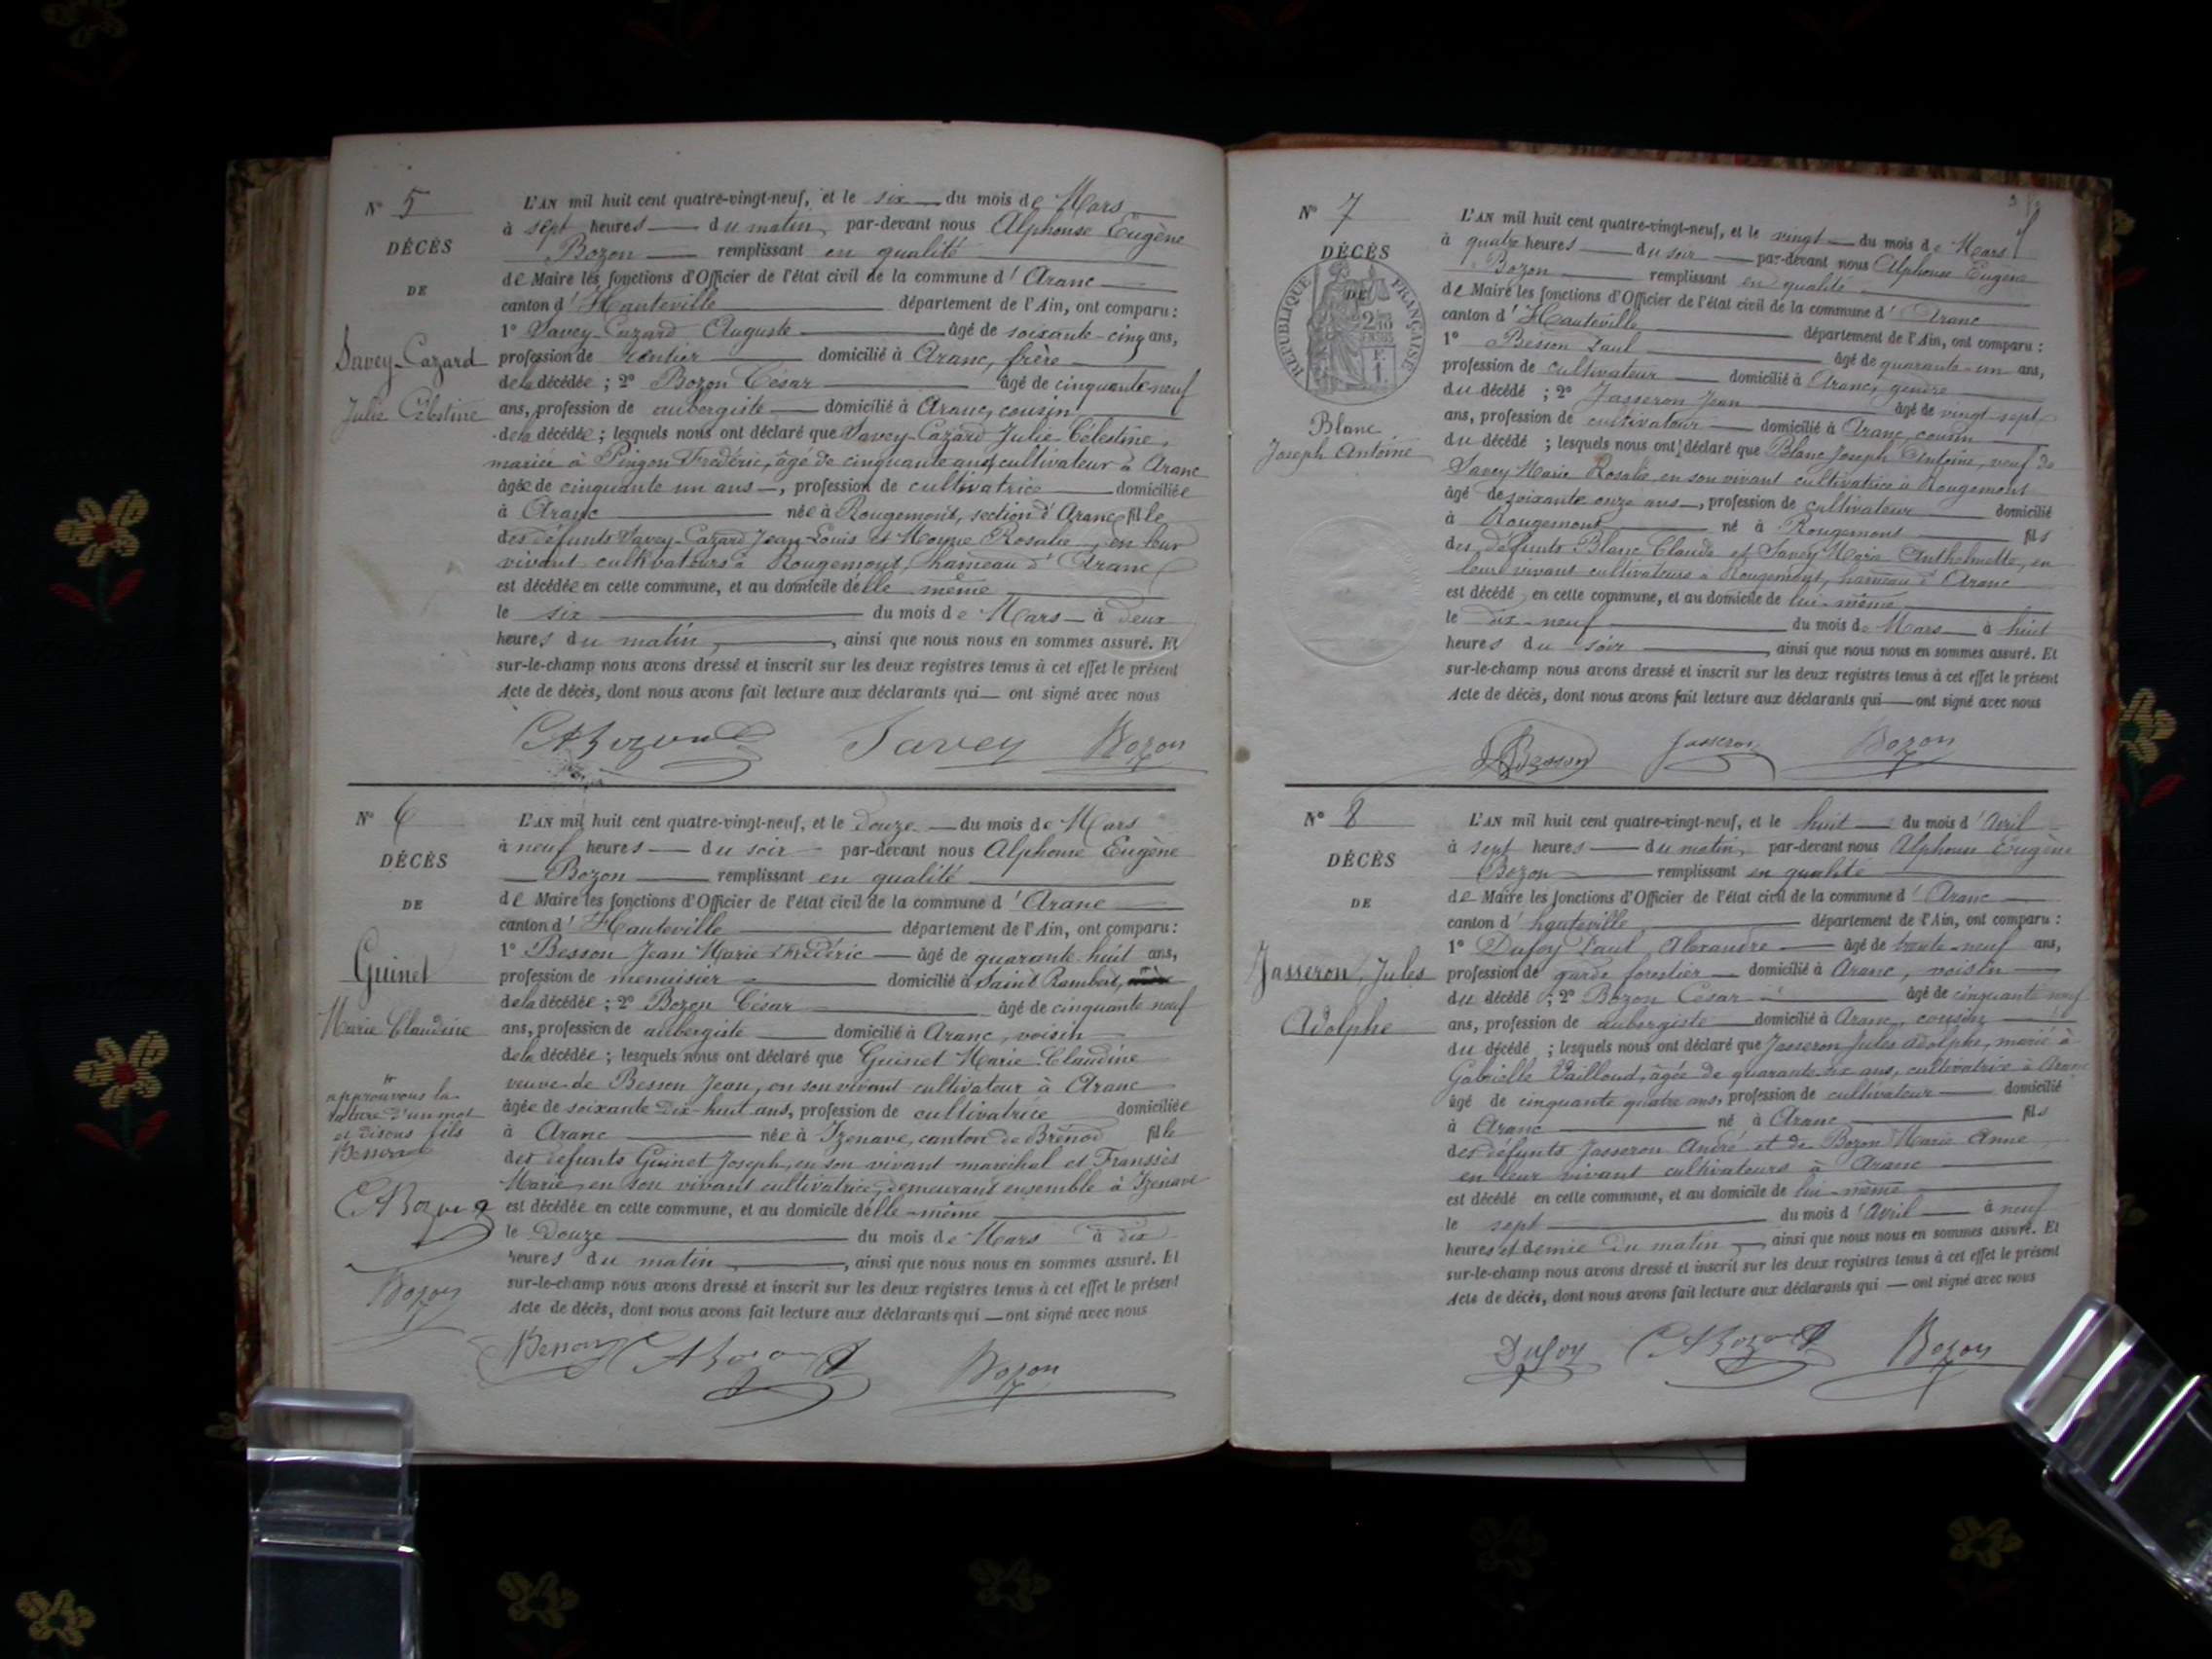 N° 5
DÉCÈS
DE
Savey-Cazard
Julie Célestine
L'AN mil huit cent quatre-vingt-neuf, et le six du mois de Mars
à sept heures du matin, par-devant nous Alphonse Eugène
Bozon remplissant en qualité
de Maire les fonctions d'Officier de l'état civil de la commune d'Aranc
canton d'Hauteville département de l'Ain, ont comparu :
1° Savey-Cazard Auguste âgé de soixante-cinq ans,
profession de rentier domicilié à Aranc, frère
de la décédée ; 2° Bozon César âgé de cinquante neuf
ans, profession de aubergiste domicilié à Aranc, cousin
de la décédée ; lesquels nous ont déclaré que Savey-Cazard Julie Célestine,
mariée à Pingon Frédéric, âgé de cinquante ans, cultivateur à Aranc
âgée de cinquante un ans, profession de cultivatrice domiciliée
à Aranc née à Rougemont, section d'Aranc fille
des défunts Savey-Cazard Jean-Louis et Rosalie, en leur
vivant cultivateurs à Rougemont, hameau d'Aranc
est décédée en cette commune, et au domicile d'elle même
le six du mois de Mars à deux
heures du matin, ainsi que nous nous en sommes assuré. Et
sur-le-champ nous avons dressé et inscrit sur les deux registres tenus à cet effet le présent
Acte de décès, dont nous avons fait lecture aux déclarants qui ont signé avec nous
Savey Bozon
N° 6
DÉCÈS
DE
Guinet
Marie Claudine
approuvons la
rature d'un mot
et disons fils
Besson
Bozon
L'AN mil huit cent quatre-vingt-neuf, et le douze du mois de Mars
à neuf heures du soir par-devant nous Alphonse Eugène
Bozon remplissant en qualité
de Maire les fonctions d'Officier de l'état civil de la commune d'Aranc
canton d'Hauteville département de l'Ain, ont comparu :
1° Besson Jean Marie Frédéric âgé de quarante huit ans,
profession de menuisier domicilié à Saint Rambert,
de la décédée ; 2° Bozon César âgé de cinquante neuf
ans, profession de aubergiste domicilié à Aranc, voisin
de la décédée ; lesquels nous ont déclaré que Guinet Marie Claudine
veuve de Besson Jean, en son vivant cultivateur à Aranc
âgée de soixante dix-huit ans, profession de cultivatrice domiciliée
à Aranc née à Izenave, canton de Brénod fille
des défunts Guinet Joseph, en son vivant maréchal et Franssès
Marie, en son vivant cultivatrice, demeurant ensemble à Izenave
est décédée en cette commune, et au domicile d'elle-même
le douze du mois de Mars à dix
heures du matin, ainsi que nous nous en sommes assuré. Et
sur-le-champ nous avons dressé et inscrit sur les deux registres tenus à cet effet le présent
Acte de décès, dont nous avons fait lecture aux déclarants qui ont signé avec nous
Besson Bozon
N° 7
DÉCÈS
DE
RÉPUBLIQUE FRANÇAISE
Blanc
Joseph Antoine
L'AN mil huit cent quatre-vingt-neuf, et le vingt du mois de Mars
à quatre heures du soir par-devant nous Alphonse Eugène
Bozon remplissant en qualité
de Maire les fonctions d'Officier de l'état civil de la commune d'Aranc
canton d'Hauteville département de l'Ain, ont comparu :
1° Besson Paul âgé de quarante-un ans,
profession de cultivateur domicilié à Aranc, gendre
du décédé ; 2° Jasseron Jean âgé de vingt sept
ans, profession de cultivateur domicilié à Aranc, cousin
du décédé ; lesquels nous ont déclaré que Blanc Joseph Antoine, veuf de
Savey Marie Rosalie, en son vivant cultivatrice à Rougemont
âgé de soixante onze ans, profession de cultivateur domicilié
à Rougemont né à Rougemont fils
des défunts Blanc Claude et Savey Marie Anthelmette, en
leur vivant cultivateurs à Rougemont, hameau d'Aranc
est décédé en cette commune, et au domicile de lui-même
le dix-neuf du mois de Mars à huit
heures du soir, ainsi que nous nous en sommes assuré. Et
sur-le-champ nous avons dressé et inscrit sur les deux registres tenus à cet effet le présent
Acte de décès, dont nous avons fait lecture aux déclarants qui ont signé avec nous
Besson Jasseron Bozon
N° 8
DÉCÈS
DE
Jasseron, Jules
Adolphe
L'AN mil huit cent quatre-vingt-neuf, et le huit du mois d'Avril
à sept heures du matin, par-devant nous Alphonse Eugène
Bozon remplissant en qualité
de Maire les fonctions d'Officier de l'état civil de la commune d'Aranc
canton d'hauteville département de l'Ain, ont comparu :
1° Dufoy Paul, Alexandre âgé de trente-neuf ans,
profession de garde forestier domicilié à Aranc, voisin
du décédé ; 2° Bozon César âgé de cinquante neuf
ans, profession de aubergiste domicilié à Aranc, cousin
du décédé ; lesquels nous ont déclaré que Jasseron Jules Adolphe, marié à
Gabrielle Vailloud, âgée de quarante six ans, cultivatrice à Aranc
âgé de cinquante quatre ans, profession de cultivateur domicilié
à Aranc né à Aranc fils
des défunts Jasseron André et de Bozon Marie Anne
en leur vivant cultivateurs à Aranc
est décédé en cette commune, et au domicile de lui-même
le sept du mois d'Avril à neuf
heures et demie du matin, ainsi que nous nous en sommes assuré. Et
sur-le-champ nous avons dressé et inscrit sur les deux registres tenus à cet effet le présent
Acte de décès, dont nous avons fait lecture aux déclarants qui ont signé avec nous
Dufoy Bozon